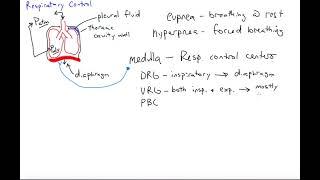 Respiratory Control
Patm
pleural fluid
thoracic cavity wall
Ppul
diaphragm
eupnea - breathing @ rest
hyperpnea - forced breathing
medulla - Resp. control center
DRG - inspiratory → diaphragm
VRG - both insp. + exp. → mostly
PBC